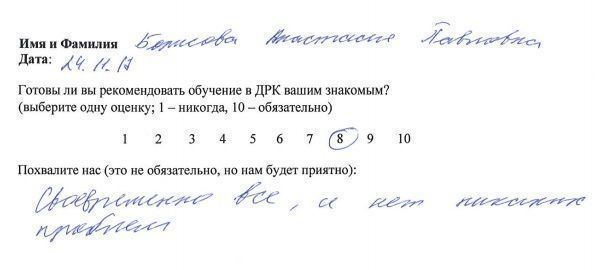 Имя и Фамилия Борисова Анастасия Павловна
Дата: 24.11.17
Готовы ли вы рекомендовать обучение в ДРК вашим знакомым?
(выберите одну оценку; 1 – никогда, 10 – обязательно)
1 2 3 4 5 6 7 8 9 10
Похвалите нас (это не обязательно, но нам будет приятно):
Своевременно все, и нет никаких
проблем